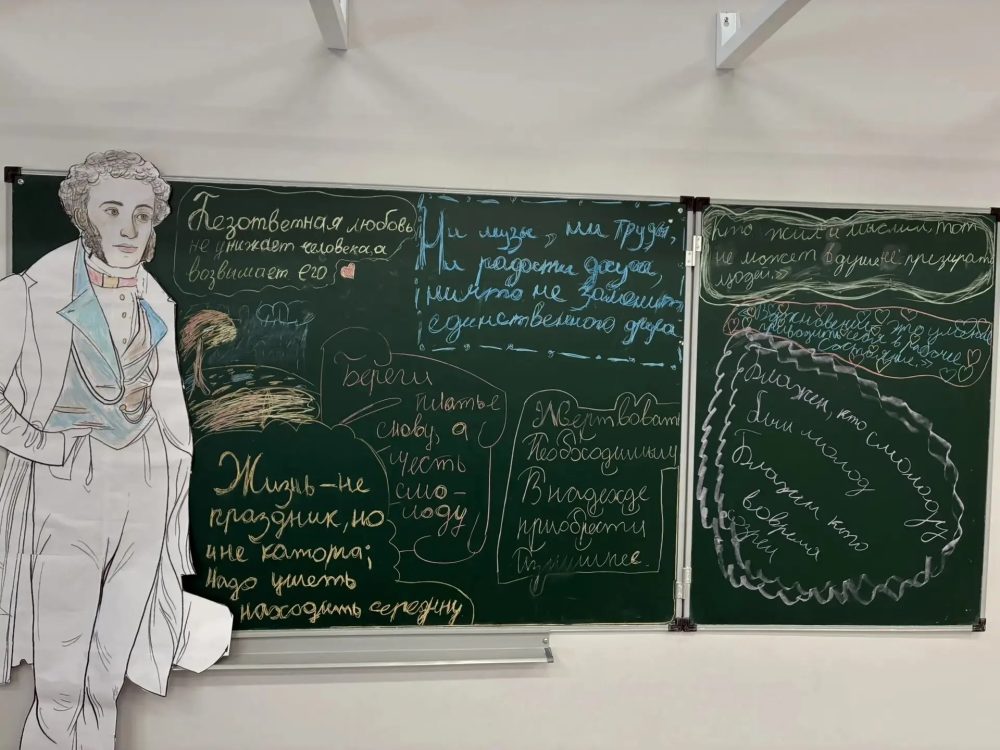 Безответная любовь
не унижает человека а
возвышает его
Ни музы, ни труды,
Ни радости досуга,
ничто не заменит
единственного друга
Береги
платье
снову, а
честь
смо-
лоду
Жизнь - не
праздник, но
и не каторга;
Надо уметь
находить середину
Жертвовать
Необходимым
В надежде
приобрести
Излишнее.
Кто жил и мыслил тот
не может в душе презирать
людей.»
«Вдохновение - это умение
в рабочее
состояние.»
Блажен, кто смолоду
был молод
Блажен кто
вовремя
созрел